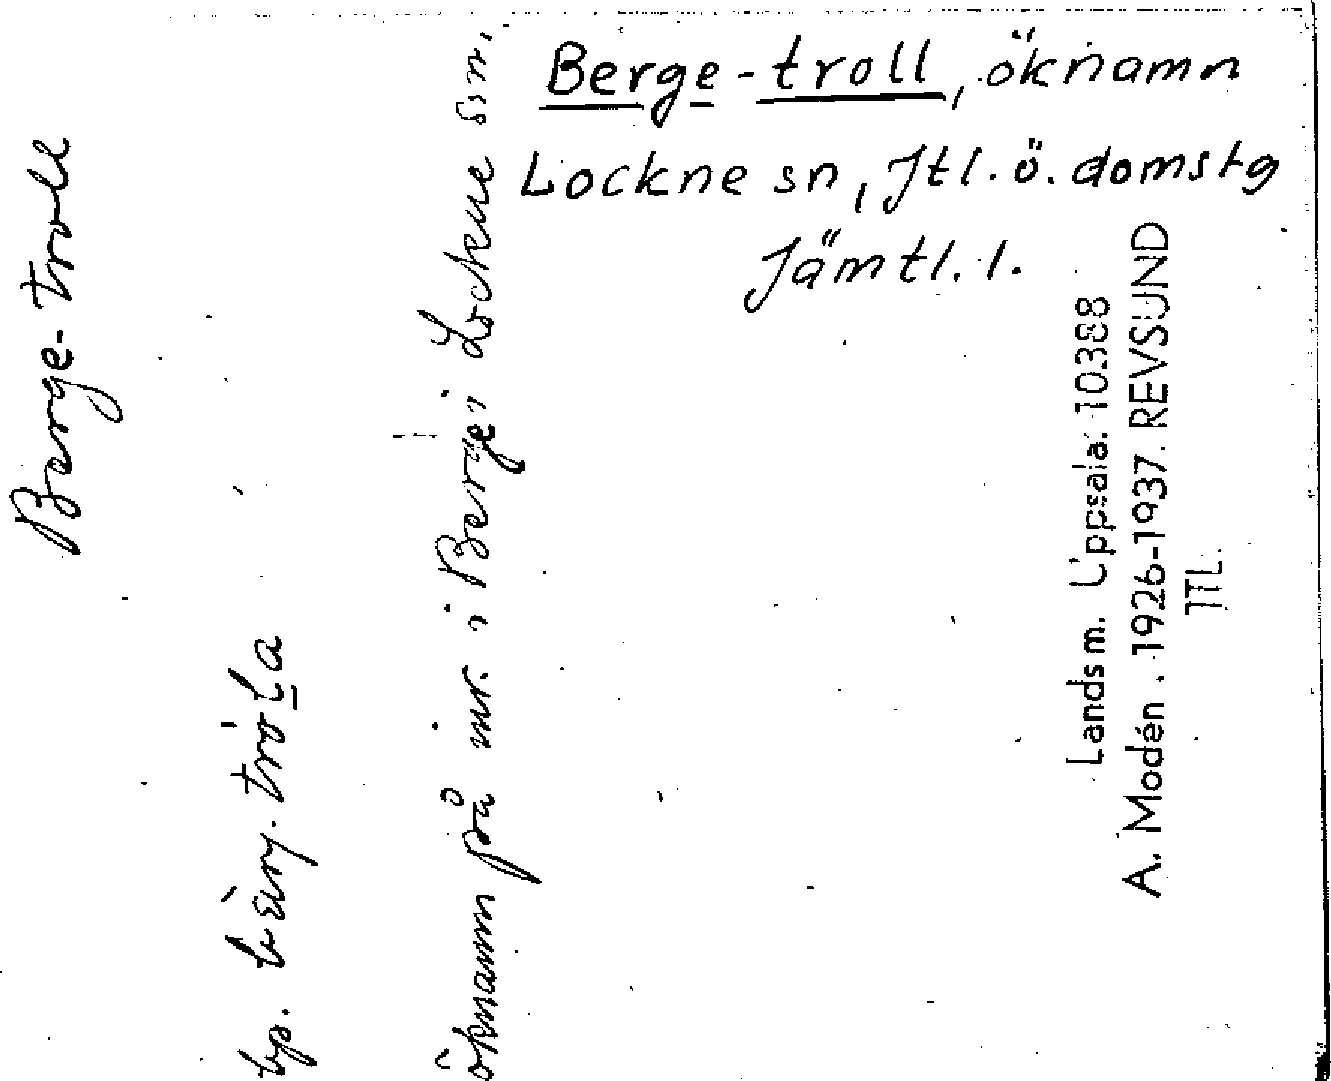 Berge-troll, öknamn
Lockne sn, Jtl. ö. domstg
Jämtl. l.
Berge-troll
bp.
öknamn på inv. i Berge i Lockne sn.
Landsm. Uppsala. 10388
A. Modén. 1926-1937. REVSUND
JTL.